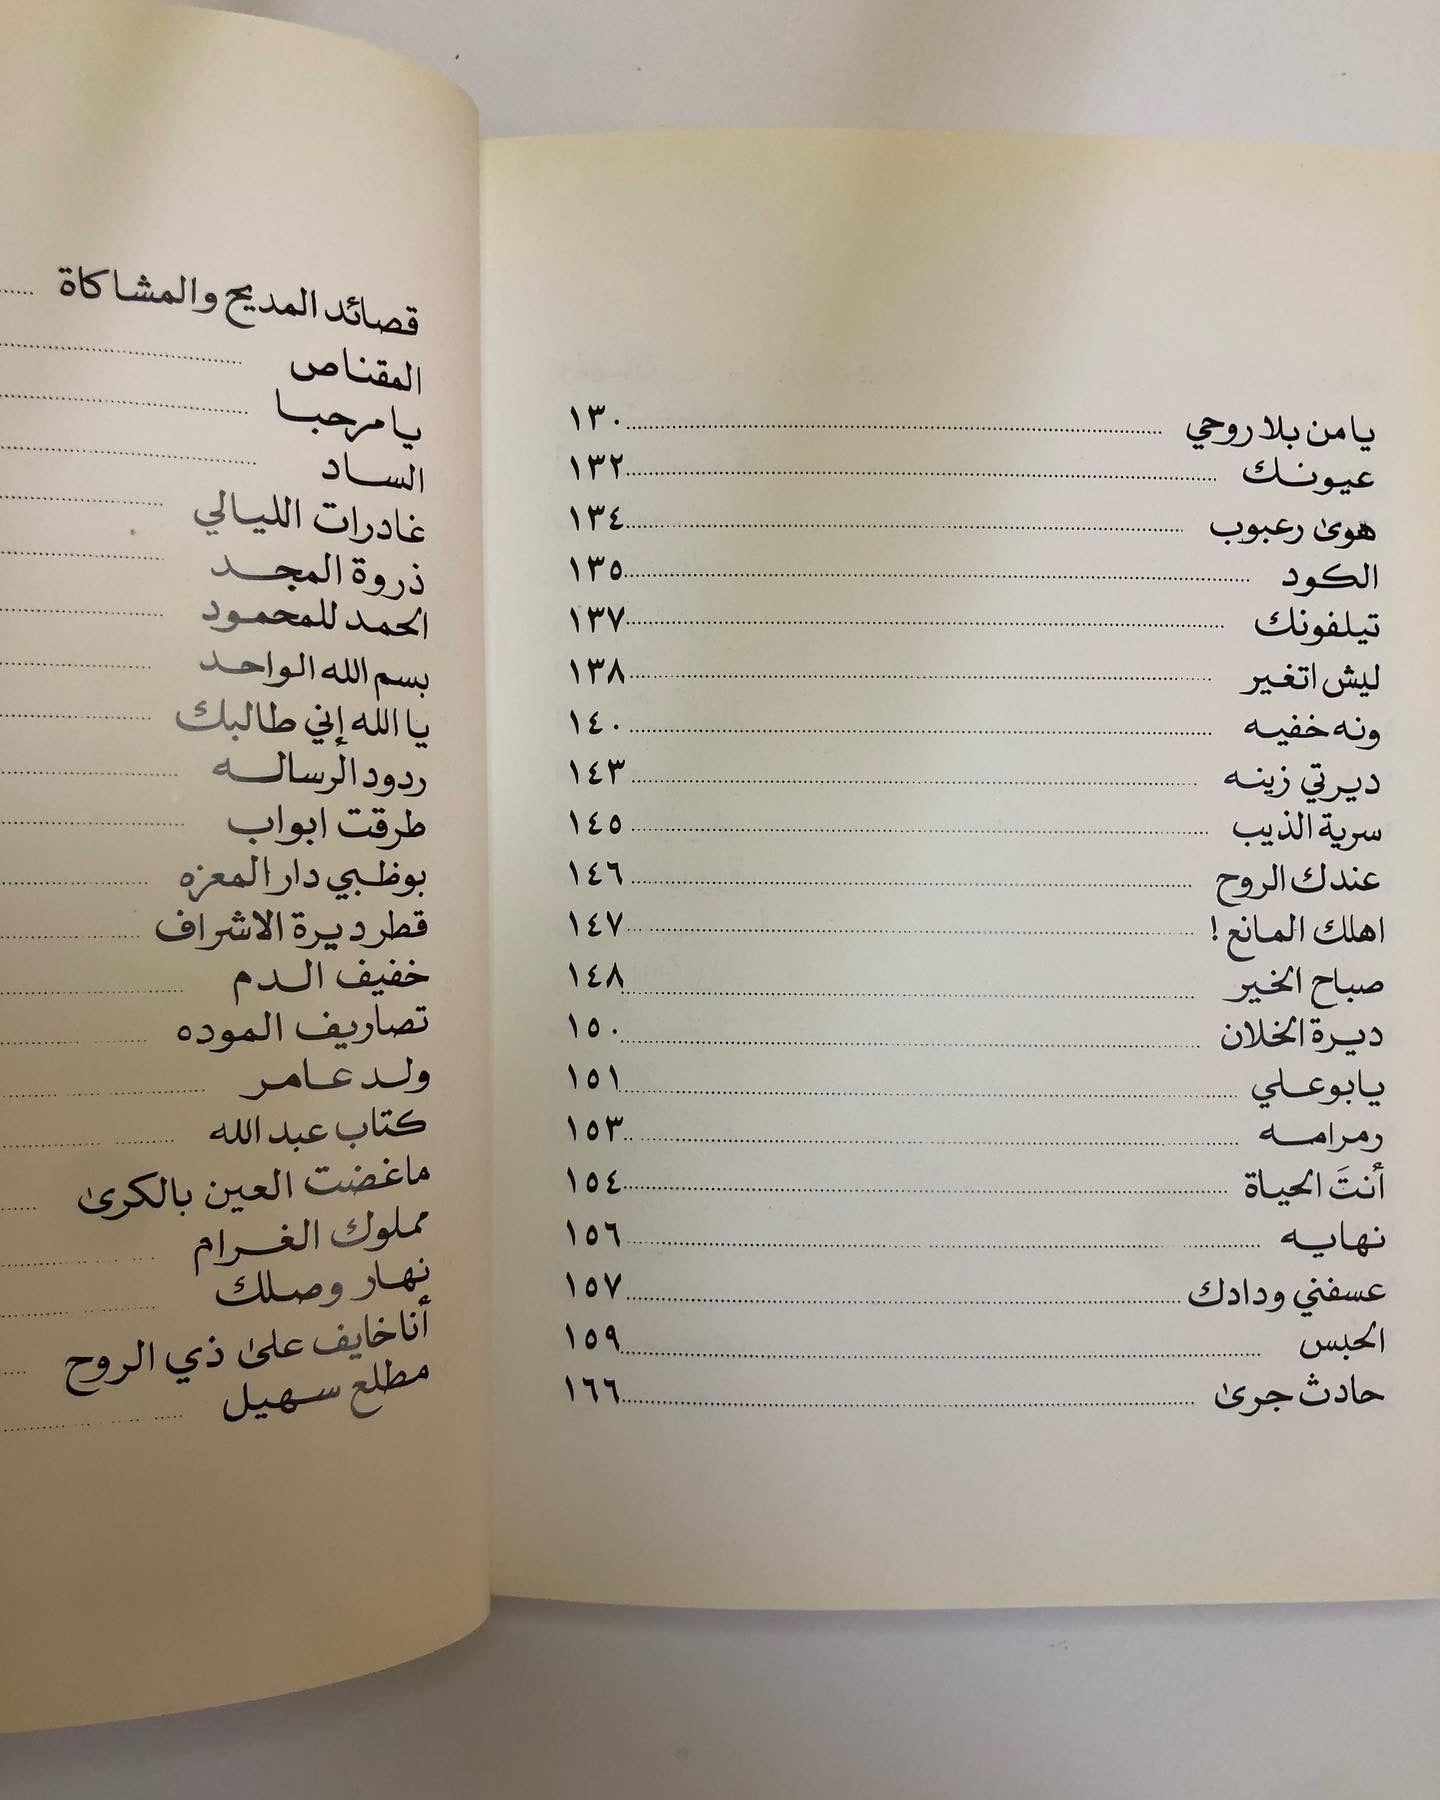 يا من بلا روحي ١٣٠
عيونك ١٣٢
هوىٰ رعبوب ١٣٤
الكود ١٣٥
تيلفونك ١٣٧
ليش اتغير ١٣٨
ونه خفيه ١٤٠
ديرتي زينه ١٤٣
سرية الذيب ١٤٥
عندك الروح ١٤٦
اهلك المانع ! ١٤٧
صباح الخير ١٤٨
ديرة الخلان ١٥٠
يابوعلي ١٥١
رمرامه ١٥٣
أنتَ الحياة ١٥٤
نهايه ١٥٦
عسفني ودادك ١٥٧
الحبس ١٥٩
حادث جرىٰ ١٦٦
قصائد المديح والمشاكاة
المقناص
يا مرحبا
الساد
غادرات الليالي
ذروة المجد
الحمد للمحمود
بسم الله الواحد
يا الله إني طالبك
ردود الرساله
طرقت ابواب
بوظبي دار المعزه
قطر ديرة الاشراف
خفيف الدم
تصاريف الموده
ولد عامر
كتاب عبد الله
ماغضت العين بالكرىٰ
مملوك الغرام
نهار وصلك
أنا خايف علىٰ ذي الروح
مطلع سهيل